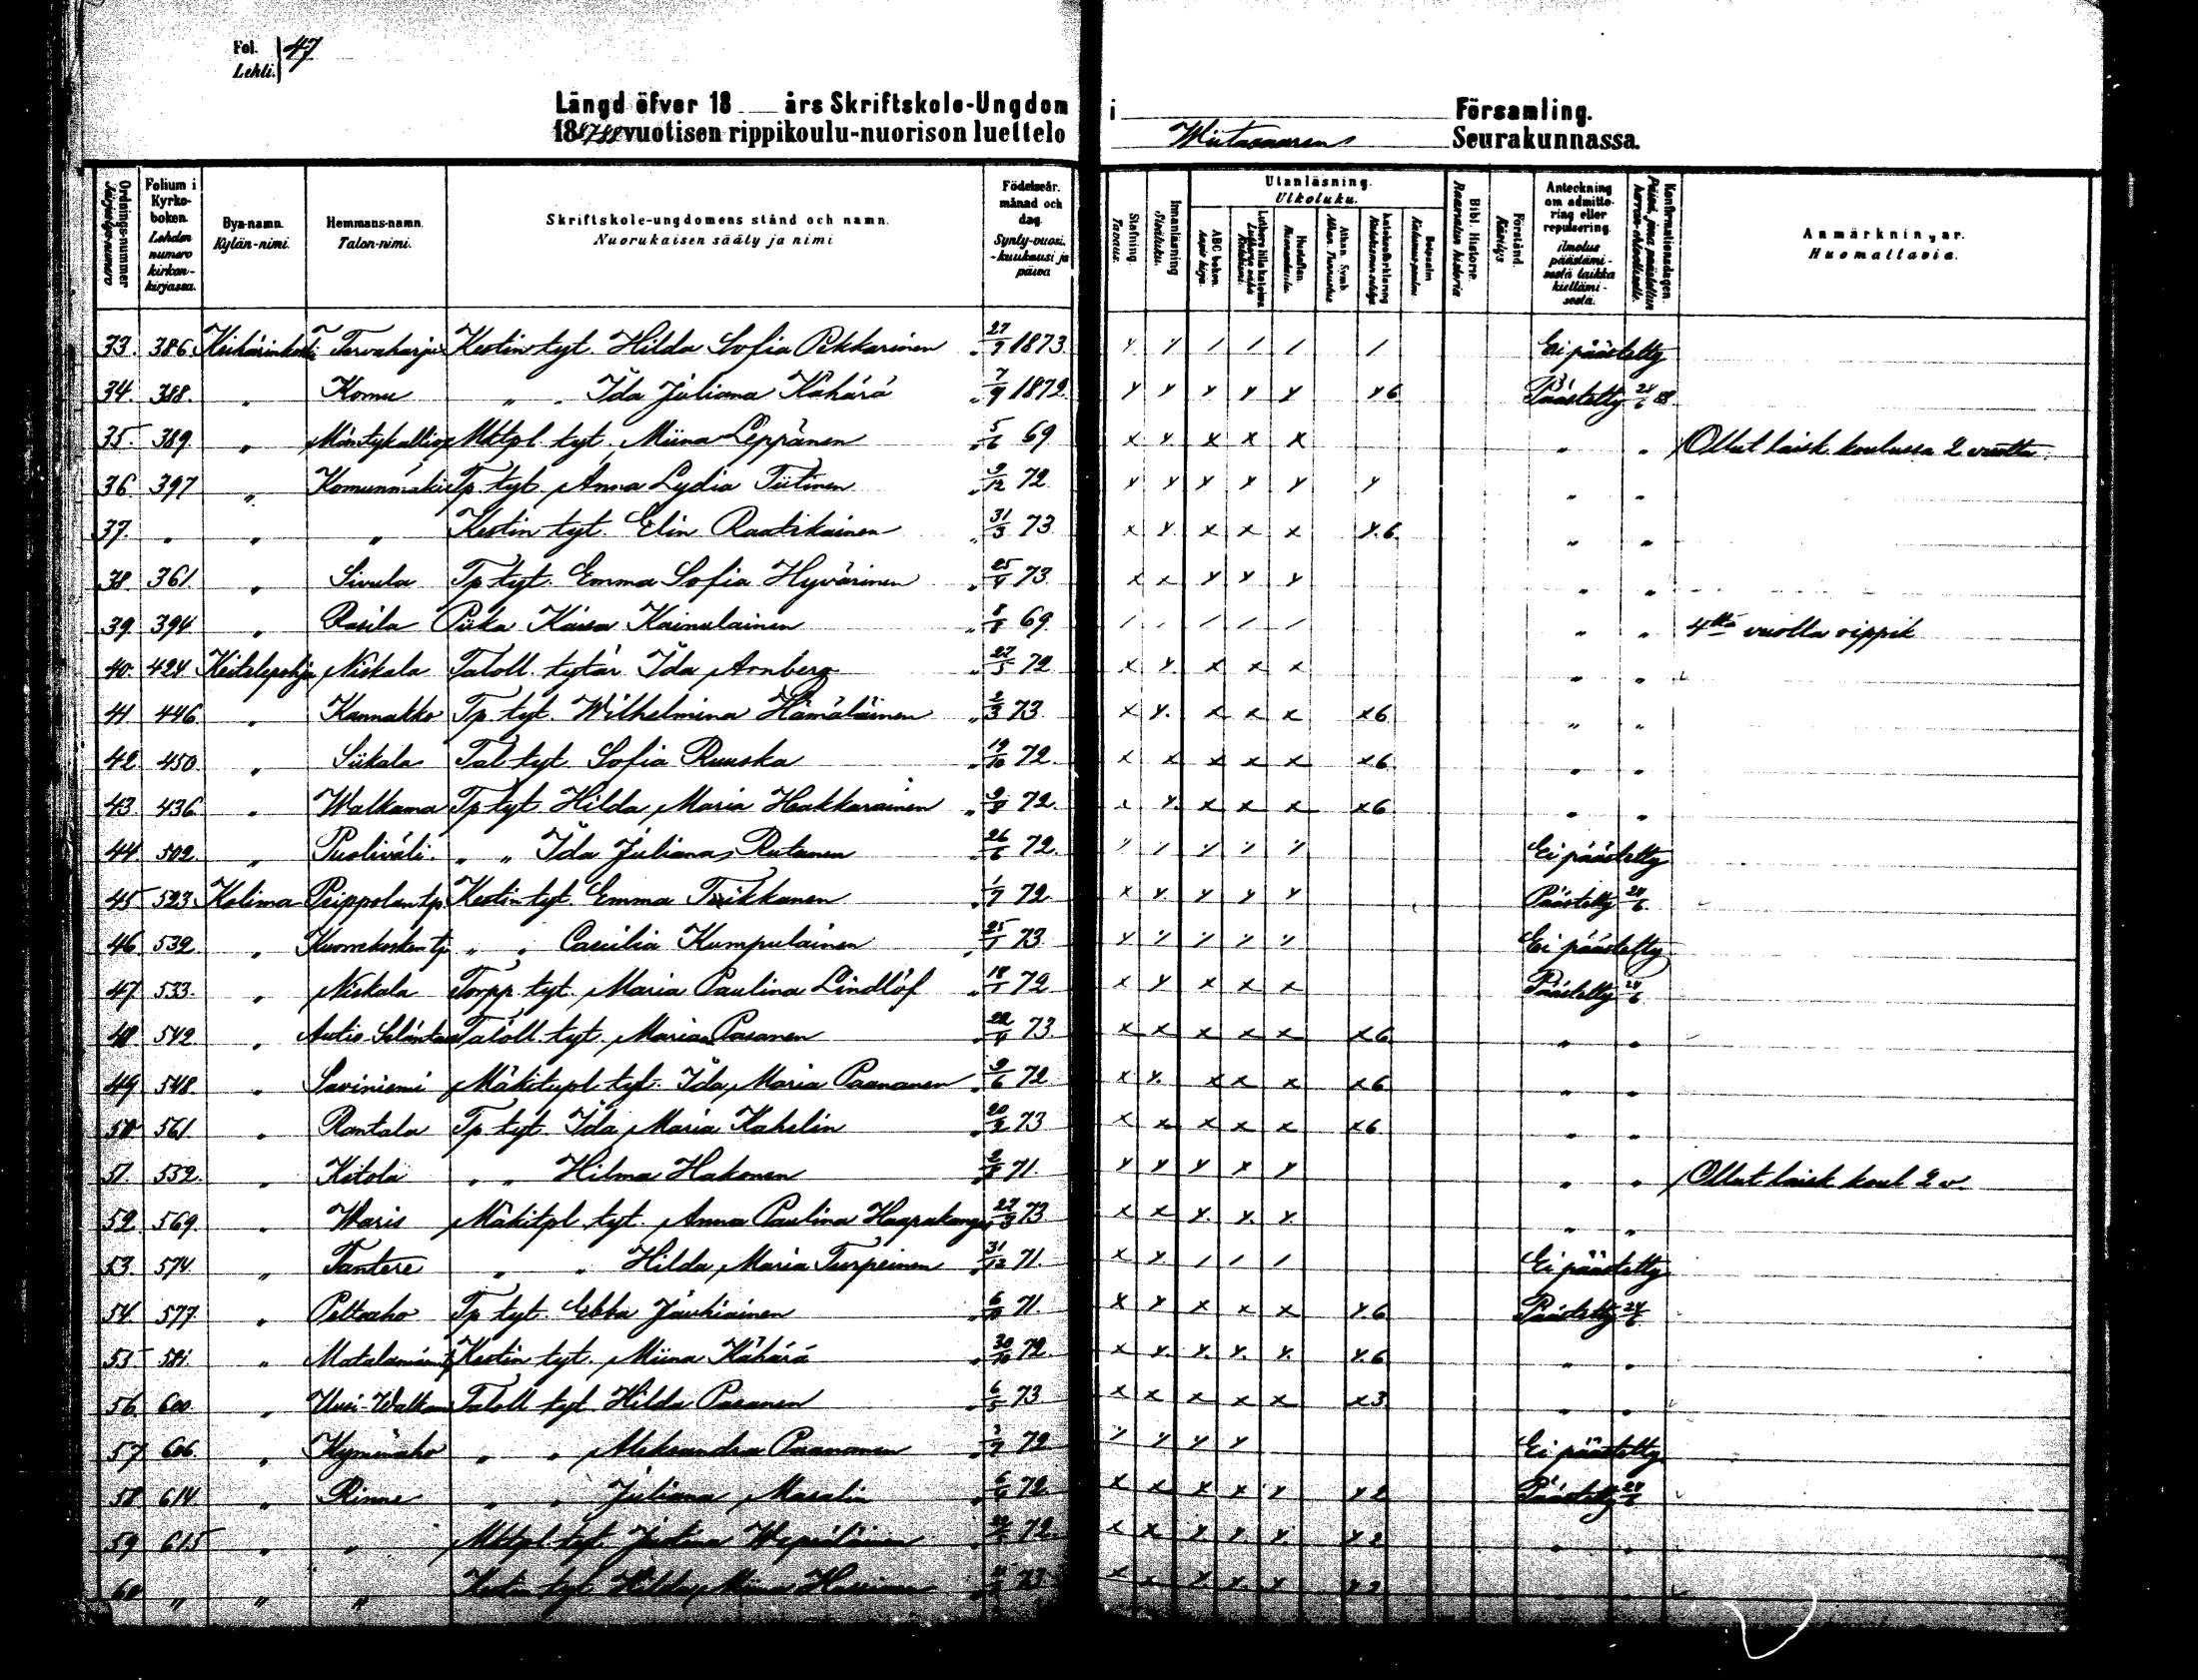 Fol. 47
Lehti.
Längd öfver 18 års Skriftskole-Ungdom i Församling.
1887-88 vuotisen rippikoulu-nuorison luettelo Wiitasaaren Seurakunnassa.
Ordnings-nummer Järjestys-numero
Folium i Kyrko-boken. Lehden numero kirkon-kirjassa.
Bya-namn. Kylän-nimi.
Hemmans-namn. Talon-nimi.
Skriftskole-ungdomens stånd och namn. Nuorukaisen sääty ja nimi
Födelseår. månad och dag. Synty-vuosi, -kuukausi ja päivä
Stafning. Tavaus.
Innanläsning Sisäluku.
Utanläsning. Ulkoluku.
ABC boken. Aapis kirja.
Bibl. Historie. Raamatun historia
Förstånd. Käsitys
Anteckning om admitte-ring eller repulsering. ilmotus päästämi-sestä taikka kieltämi-sestä.
Konfirmationsdagen.
Anmärkningar. Huomattavia.
33. 386 Keihärinkoski Tervaharju Kestin tyt. Hilda Sofia Pekkarinen 27/9 1873. / / / / / / Ei päästetty
34. 388. " Komu " " Ida Juliana Kähärä 7/9 1872. x x x x x x6 Päästetty 24/6 88.
35. 389. " Mäntykallio Mktpl. tyt. Miina Leppänen 5/6 69 x x x x x " " Ollut laisk. koulussa 2 vuotta.
36 397 " Komunmäki Tp. tyt. Anna Lydia Tiitinen 9/12 72. x x x x x x " "
37. " " " Kestin tyt. Elin Raatikainen 31/3 73 x x x x x x.6. " "
38. 361. " Sivula Tp. tyt. Emma Sofia Hyvärinen 25/4 73. x x x x x " "
39. 394 " Rasila Piika Kaisa Kainulainen 8/8 69. / / / / / " " 4ttä vuotta rippik
40. 424 Keitelepohja Niskala Taloll. tytär Ida Arnberg 27/5 72 x x. x x x " "
41. 446. " Kannakko Tp. tyt. Wilhelmina Hämäläinen 2/3 73. x x. x x x x6. " "
42. 450 " Siikala Tal tyt Sofia Ruuska 19/10 72. x x x x x x6. " "
43. 436. " Walkama Tp. tyt. Hilda Maria Hakkarainen 9/8 72. x x. x x x x6 " "
44. 502. " Puoliväli. " " Ida Juliana Rutanen 26/6 72. / / / / / Ei päästetty
45 523 Kolima Peippolan tp. Kestin tyt. Emma Tsikkanen 1/7 72. x x. x x x Päästetty 24/6.
46. 532. " Kuorrekosken tp. " " Caecilia Kumpulainen 25/1 73. x / / / / Ei päästetty
47 533. " Niskala Torpp. tyt. Maria Paulina Lindlöf 18/1 72 x x x x x Päästetty 24/6
48 542. " Autio- Taloll. tyt. Maria Pasanen 22/4 73. x x x x x x6. " "
49. 548. " Saviniemi Mäkitupl. tyt. Ida Maria Paananen 9/6 72. x x. x x x x6 " "
50 561. " Rantala Tp. tyt. Ida Maria Kahelin 20/2 73 x x x x x x6. " "
51. 552. " Ketola " " Hilma Hakonen 2/8 71. x x x x x " " Ollut laisk. koul 2 v.
52. 569. " Waris Mäkitpl. tyt. Anna Paulina Haapakangas 27/3 73 x x x. x. x. " "
53. 574 " Tantere " " Hilda Maria Turpeinen 31/12 71. x x. / / / Ei päästetty
54. 577. " Peltoaho Tp. tyt. Ebba Jauhiainen 6/10 71. x x x x x x.6. Päästetty 24/6
55 581. " Matalaniemi Kestin tyt. Miina Kähärä 30/10 72. x x. x. x. x. x.6 " "
56. 600. " Uusi-Walkama Taloll tyt. Hilda Pasanen 6/5 73 x x x x x x3. " "
57. 606. " Kyminaho " " Aleksandra Paananen 72 / / x x Ei päästetty
58 614. " Rinne " " Juliana Masalin 6/4 72 x x x x x x2 Päästetty 24/6
59 615 " " Mktpl. tyt. Justina Wepsäläinen 72 x x x. x. x. x2 " "
60 " " " Kestin tyt. Hilda Miina 73 x x x x. x x2